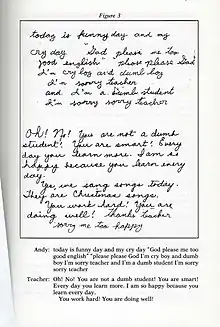 Figure 3
today is funny day and my
cry day "God please me too
good english" please please God
I'm cry boy and dumb boy
I'm sorry teacher
and I'm a dumb student
I'm sorry sorry teacher
Oh! No! You are not a dumb
student! You are smart! Every
day you learn more. I am so
happy because you learn every
day.
Yes, we sang songs today.
They are Christmas songs.
You work hard! You are
doing well! Thanks teacher
sorry me too happy
Andy: today is funny day and my cry day "God please me too
good english" "please please God I'm cry boy and dumb
boy I'm sorry teacher and I'm a dumb student I'm sorry
sorry teacher
Teacher: Oh! No! You are not a dumb student! You are smart!
Every day you learn more. I am so happy because you
learn every day.
You work hard! You are doing well!